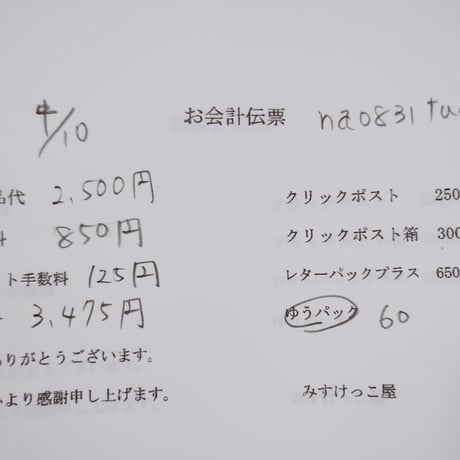 4/10 お会計伝票 na0831tu
代 2,500円 クリックポスト 250
850円 クリックポスト箱 300
ト手数料 125円 レターパックプラス 650
3,475円 ゆうパック 60
りがとうございます。
より感謝申し上げます。 みすけっこ屋